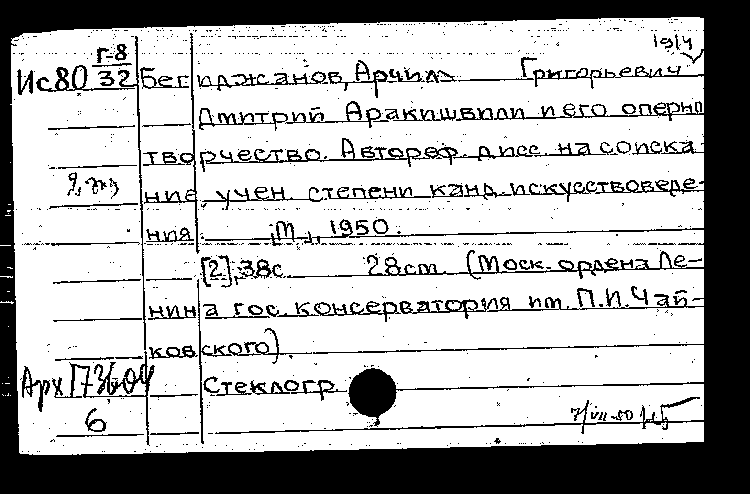 1914
Г-8
Ис80 32 Бегиджанов, Арчилъ Григорьевич
Дмитрий Аракишвили и его оперн
творчество. Автореф. дисс. на соиска-
2 экз ние учен. степени канд. искусствоведе-
ния. [М.], 1950.
[2], 38с. 28см. (Моск. ордена Ле-
нина гос. консерватория им. П.И. Чай-
ковского).
Арх
Стеклогр.
6